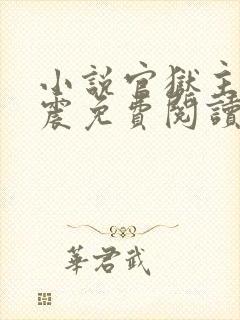 小說官獄主
震免費閱讀
華君武